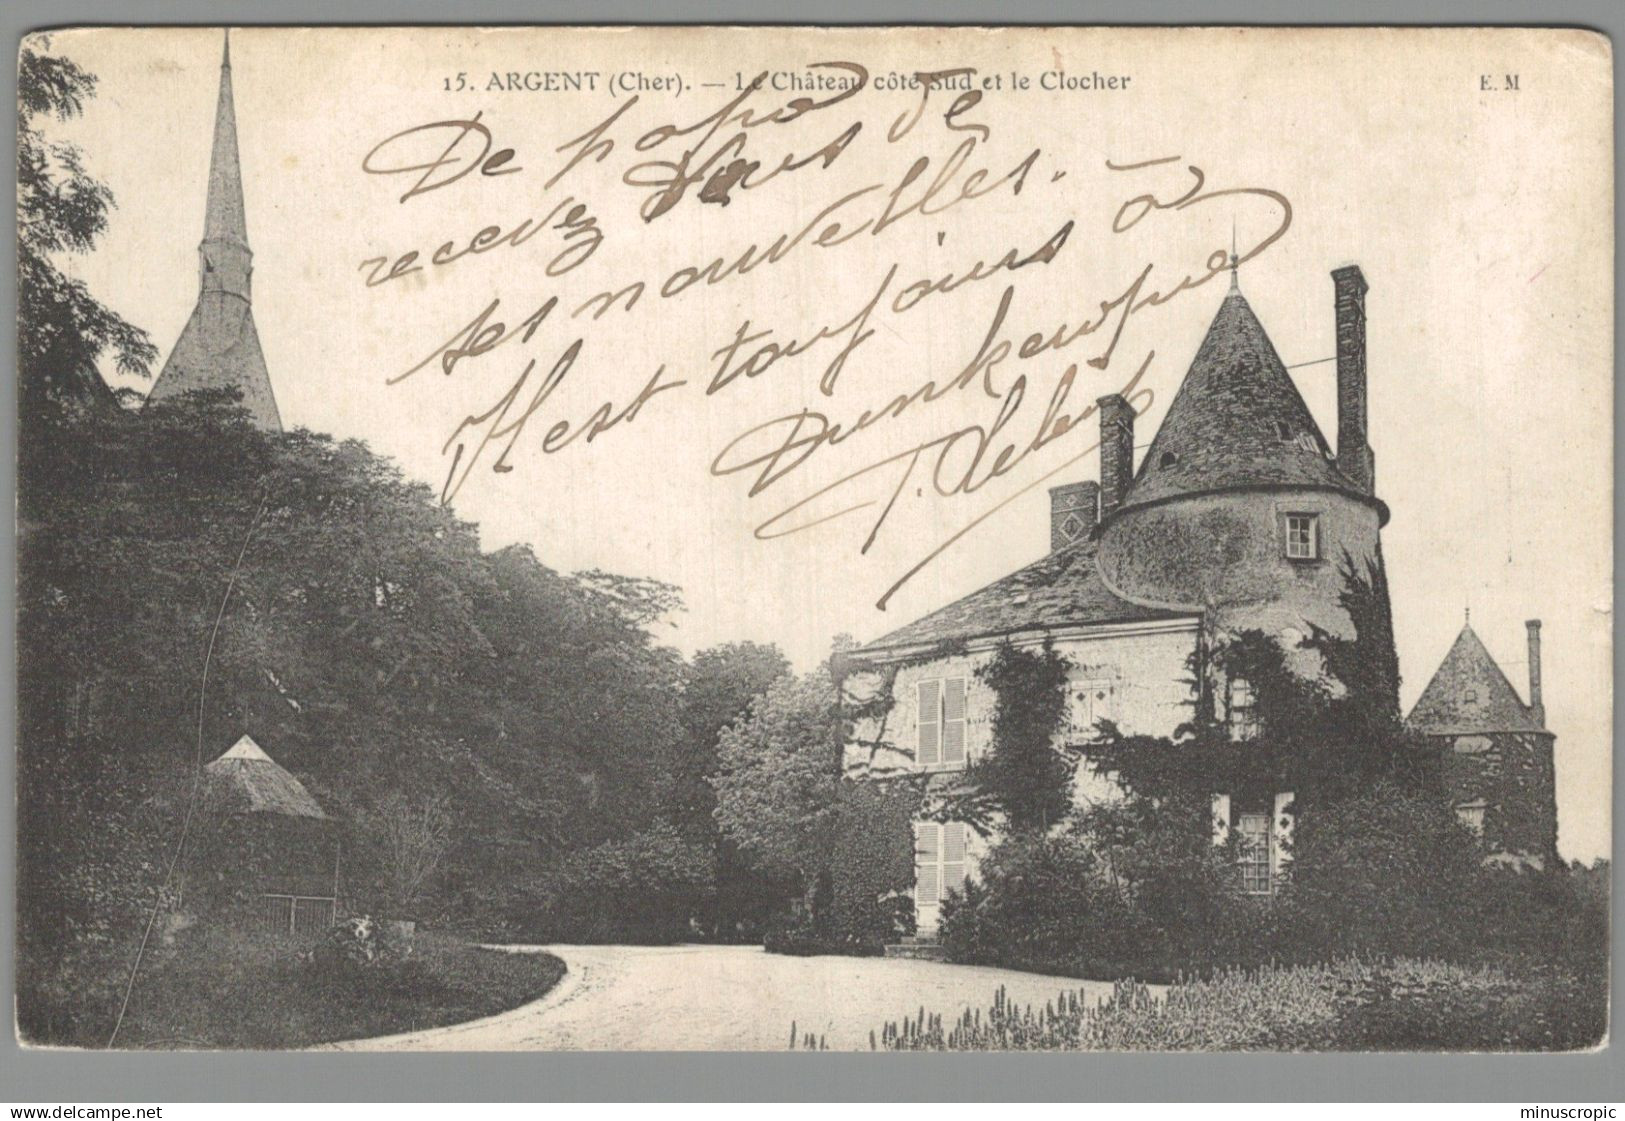 15. ARGENT (Cher). — Le Château côté Sud et le Clocher
E. M
De papa
recevez Vous de
ses nouvelles. —
Il est toujours à
Dunkerque
www.delcampe.net
minuscropic